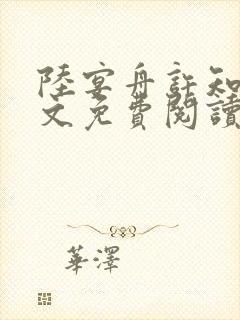 陸宴舟許知
文免費閱讀
華澤